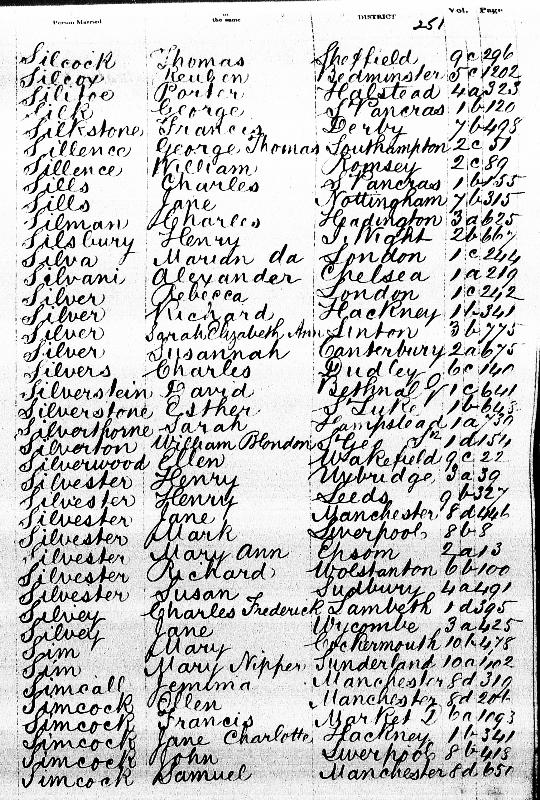 251
Person Married the same DISTRICT Vol. Page
Silcock Thomas Sheffield 9c 296
Silcox Reuben Bedminster 5c 1202
Silitoe Porter Halstead 4a 323
Silk George S Pancras 1b 120
Silkstone Francis Derby 7b 498
Sillence George Thomas Southampton 2c 51
Sillence William Romsey 2c 89
Sills Charles S Pancras 1b 155
Sills Jane Nottingham 7b 315
Silman Charles Headington 3a 625
Silsbury Henry I. Wight 2b 667
Silva Marian da London 1c 244
Silvani Alexander Chelsea 1a 219
Silver Rebecca London 1c 242
Silver Richard Hackney 1b 341
Silver Sarah Elizabeth Ann Linton 3b 775
Silver Susannah Canterbury 2a 675
Silvers Charles Dudley 6c 140
Silverstein David Bethnal G 1c 641
Silverstone Esther S Luke 1b 648
Silverthorne Sarah Hampstead 1a 739
Silverton William Blondon S Geo 1d 154
Silverwood Ellen Wakefield 9c 22
Silvester Henry Uxbridge 3a 39
Silvester Henry Leeds 9b 327
Silvester Jane Manchester 8d 446
Silvester Mark Liverpool 8b 8
Silvester Mary Ann Epsom 2a 13
Silvester Richard Wolstanton 6b 100
Silvester Susan Sudbury 4a 491
Silvey Charles Frederick Lambeth 1d 395
Silvey Jane Wycombe 3a 425
Sim Mary Cockermouth 10b 478
Sim Mary Nipper Sunderland 10a 102
Simcall Jemima Manchester 8d 319
Simcock Ellen Manchester 8d 206
Simcock Francis Market D 6a 1093
Simcock Jane Charlotte Hackney 1b 341
Simcock John Liverpool 8b 418
Simcock Samuel Manchester 8d 650